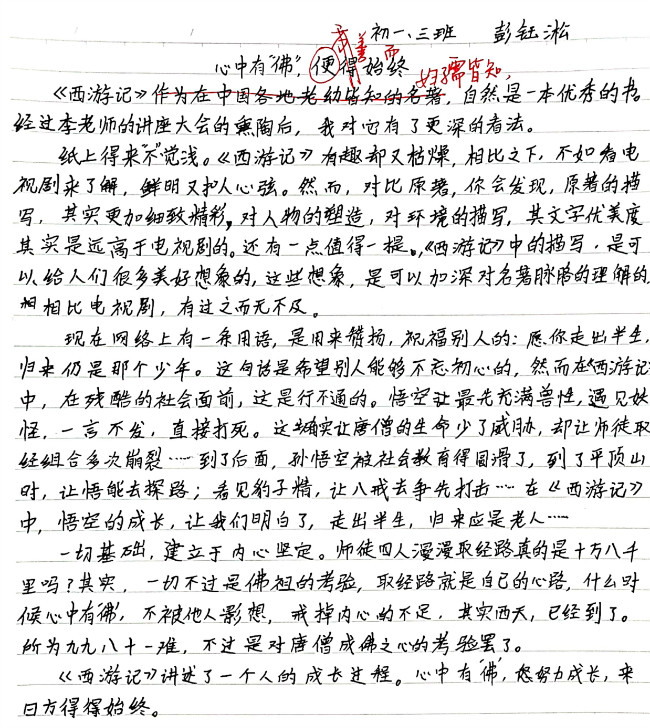 初一、三班 彭钰淞
心中有“佛”，便得始终
善而
妇孺皆知，
《西游记》作为在中国各地老幼皆知的名著，自然是一本优秀的书。
经过李老师的讲座大会的熏陶后，我对它有了更深的看法。
纸上得来“不”觉浅。《西游记》有趣却又枯燥，相比之下，不如看电
视剧来了解，鲜明又扣人心弦。然而，对比原著，你会发现，原著的描
写，其实更加细致精彩，对人物的塑造，对环境的描写，其文字优美度
其实是远高于电视剧的。还有一点值得一提，《西游记》中的描写，是可
以给人们很多美好想象的，这些想象，是可以加深对名著脉络的理解的，
相相比电视剧，有过之而无不及。
现在网络上有一条用语，是用来赞扬，祝福别人的：愿你走出半生，
归来仍是那个少年。这句话是希望别人能够不忘初心的，然而在《西游记》
中，在残酷的社会面前，这是行不通的。悟空让最先充满兽性，遇见妖
怪，一言不发，直接打死。这确实让唐僧的生命少了威胁，却让师徒取
经组合多次崩裂……到了后面，孙悟空被社会教育得圆滑了，到了平顶山
时，让悟能去探路；看见豹子精，让八戒去争先打击……在《西游记》
中，悟空的成长，让我们明白了，走出半生，归来应是老人……
一切基础，建立于内心坚定。师徒四人漫漫取经路真的是十万八千
里吗？其实，一切不过是佛祖的考验，取经路就是自己的心路，什么时
候心中有佛，不被他人影想，戒掉内心的不足，其实西天，已经到了。
所为九九八十一难，不过是对唐僧成佛之心的考验罢了。
《西游记》讲述了一个人的成长过程。心中有“佛”，您努力成长，来
日方得得始终。